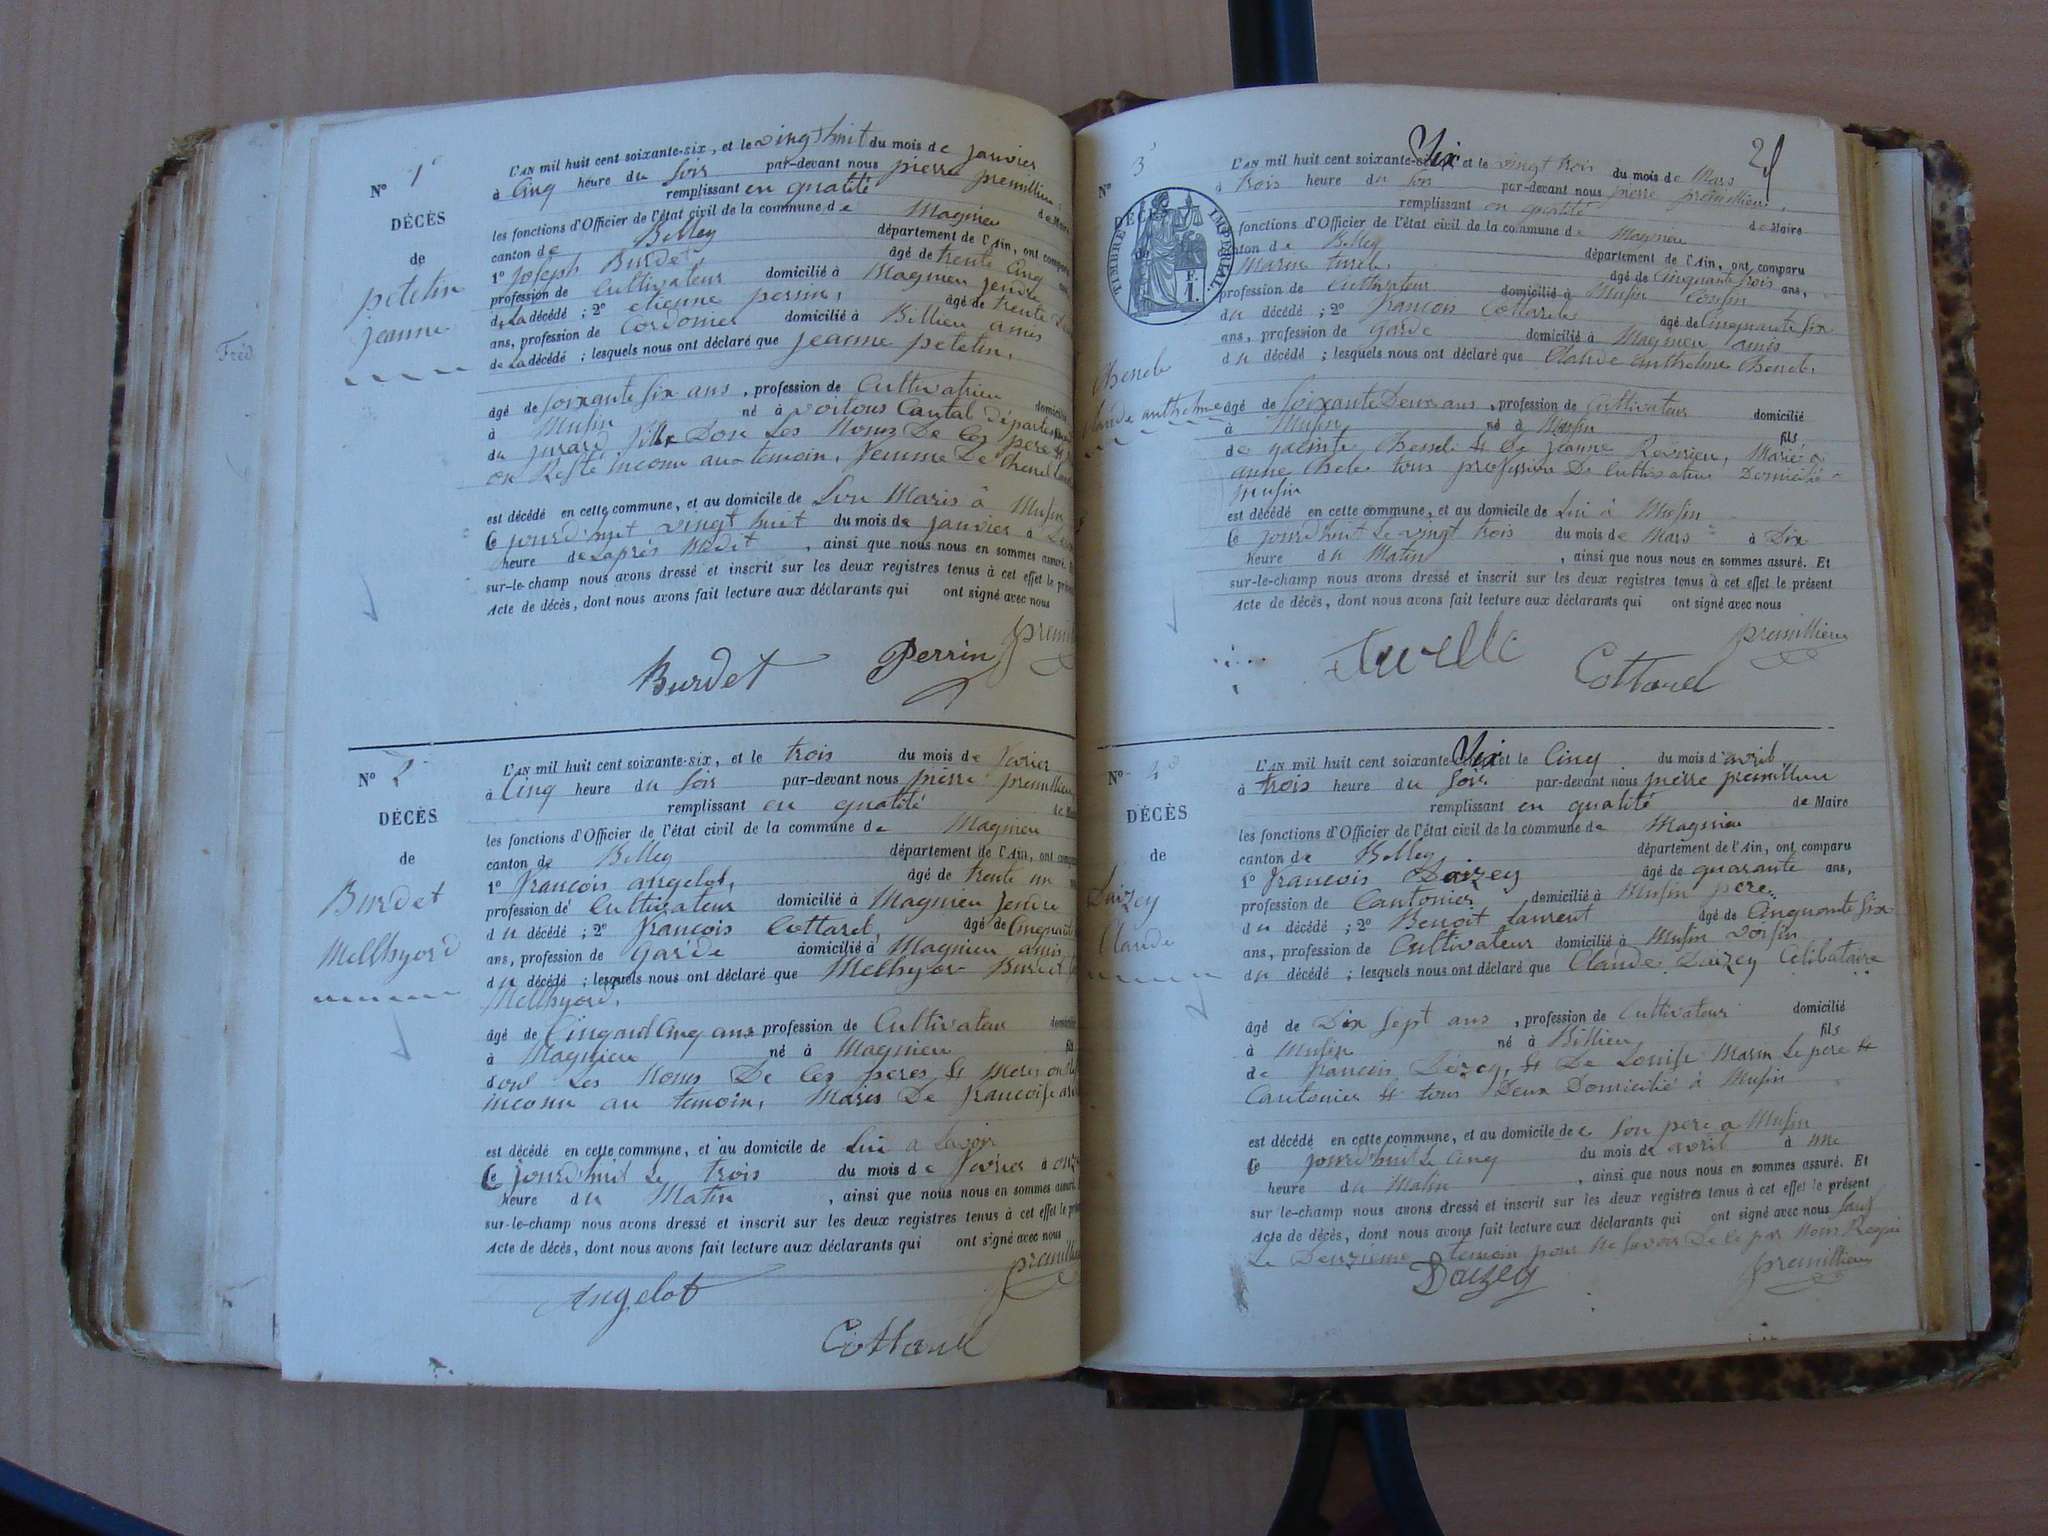 Fréd
N° 1
DÉCÈS
de
petetin
jeanne
L'AN mil huit cent soixante-six, et le vingt huit du mois de janvier
à Cinq heure du soir par-devant nous pierre premillieu
remplissant en qualité de Maire
les fonctions d'Officier de l'état civil de la commune de Magnieu
canton de Belley département de l'Ain, ont comparu
1° joseph Burdet, âgé de trente Cinq
profession de Cultivateur domicilié à Magnieu jendre
de La décédé ; 2° etienne perrin, âgé de trente
ans, profession de Cordonier domicilié à Billieu amis
de La décédé ; lesquels nous ont déclaré que jeanne petetin,
âgé de soixante six ans, profession de Cultivatrice domicilié
à Musin né à voitous Cantal départ
du jurard ville Don Les Noms De Ces pere &
on Reste inconu aux temoin, femme De Chenel
est décédé en cette commune, et au domicile de Son Maris à Musin
Ce jourd'huit vingt huit du mois de janvier à
heure de Laprés Midit, ainsi que nous nous en sommes assuré. Et
sur-le-champ nous avons dressé et inscrit sur les deux registres tenus à cet effet le présent
Acte de décès, dont nous avons fait lecture aux déclarants qui ont signé avec nous
Burdet Perrin premil
N° 2
DÉCÈS
de
Burdet
Melhyord
L'AN mil huit cent soixante-six, et le trois du mois de fevrier
à Cinq heure du soir par-devant nous pierre premillieu
remplissant en qualité de Maire
les fonctions d'Officier de l'état civil de la commune de Magnieu
canton de Belley département de l'Ain, ont comparu
1° françois angelot, âgé de trente un
profession de Cultivateur domicilié à Magnieu jendre
du décédé ; 2° françois Cottarel, âgé de Cinquante
ans, profession de Garde domicilié à Magnieu amis
du décédé ; lesquels nous ont déclaré que Melhyor Burdet
Melhyord,
âgé de Cinquant Cinq ans profession de Cultivateur domicilié
à Magnieu né à Magnieu fils
dont Les Noms De Ces peres & Meres on
inconu au temoin, Maris De francoise
est décédé en cette commune, et au domicile de Lui a Savoir
Ce jourd'huit Le trois du mois de fevrier à onze
heure du Matin, ainsi que nous nous en sommes assuré.
sur-le-champ nous avons dressé et inscrit sur les deux registres tenus à cet effet le
Acte de décès, dont nous avons fait lecture aux déclarants qui ont signé avec nous
Angelot premilli
Cottarel
25
N° 3
DÉCÈS
de
TIMBRE IMPÉRIAL
F.
1.
Chenel
Claude anthelme
L'AN mil huit cent soixante-Six et le vingt trois du mois de Mars
à trois heure du soir par-devant nous pierre premillieu,
remplissant en qualité de Maire
fonctions d'Officier de l'état civil de la commune de Magnieu
canton de Belley département de l'Ain, ont comparu
Marin turel, âgé de Cinquante trois ans,
profession de Cultivateur domicilié à Musin Cousin
du décédé ; 2° françois Cottarel, âgé de Cinquante Six
ans, profession de garde domicilié à Magnieu amis
du décédé ; lesquels nous ont déclaré que Claude anthelme Chenel,
âgé de Soixante Deux ans, profession de Cultivateur domicilié
à Musin né à Musin fils
de yacinte Chenel & De jeanne Revrieu, Marié à
anne Chene tous proffession De Cultivateur Domicilié à
Musin
est décédé en cette commune, et au domicile de Lui à Musin
Ce jourd'huit Le vingt trois du mois de Mars à Dix
heure du Matin, ainsi que nous nous en sommes assuré. Et
sur-le-champ nous avons dressé et inscrit sur les deux registres tenus à cet effet le présent
Acte de décès, dont nous avons fait lecture aux déclarants qui ont signé avec nous
premillieu
Cottarel
N° 4
DÉCÈS
de
Daizey
Claude
L'AN mil huit cent soixante-Six et le Cinq du mois d'avril
à trois heure du soir par-devant nous pierre premillieu
remplissant en qualité de Maire
les fonctions d'Officier de l'état civil de la commune de Magnieu
canton de Belley département de l'Ain, ont comparu
1° francois Daizey âgé de quarante ans,
profession de Cantonier domicilié à Musin pere
du décédé ; 2° Benoit Laurent âgé de Cinquante Six
ans, profession de Cultivateur domicilié à Musin voisin
du décédé ; lesquels nous ont déclaré que Claude Daizey Célibataire
âgé de Dix Sept ans, profession de Cultivateur domicilié
à Musin né à Billieu fils
de francois Dézey, & De Louise Marin Le pere &
Cantonier & tous Deux Domicilié à Musin
est décédé en cette commune, et au domicile de Son pere a Musin
Ce jourd'huit Le Cinq du mois de avril à une
heure du Matin, ainsi que nous nous en sommes assuré. Et
sur le-champ nous avons dressé et inscrit sur les deux registres tenus à cet effet le présent
Acte de décès, dont nous avons fait lecture aux déclarants qui ont signé avec nous Sauf
Le Deuzieme temoin pour Ne Savoir De Ce par Nous Requi
Daizey premillieu